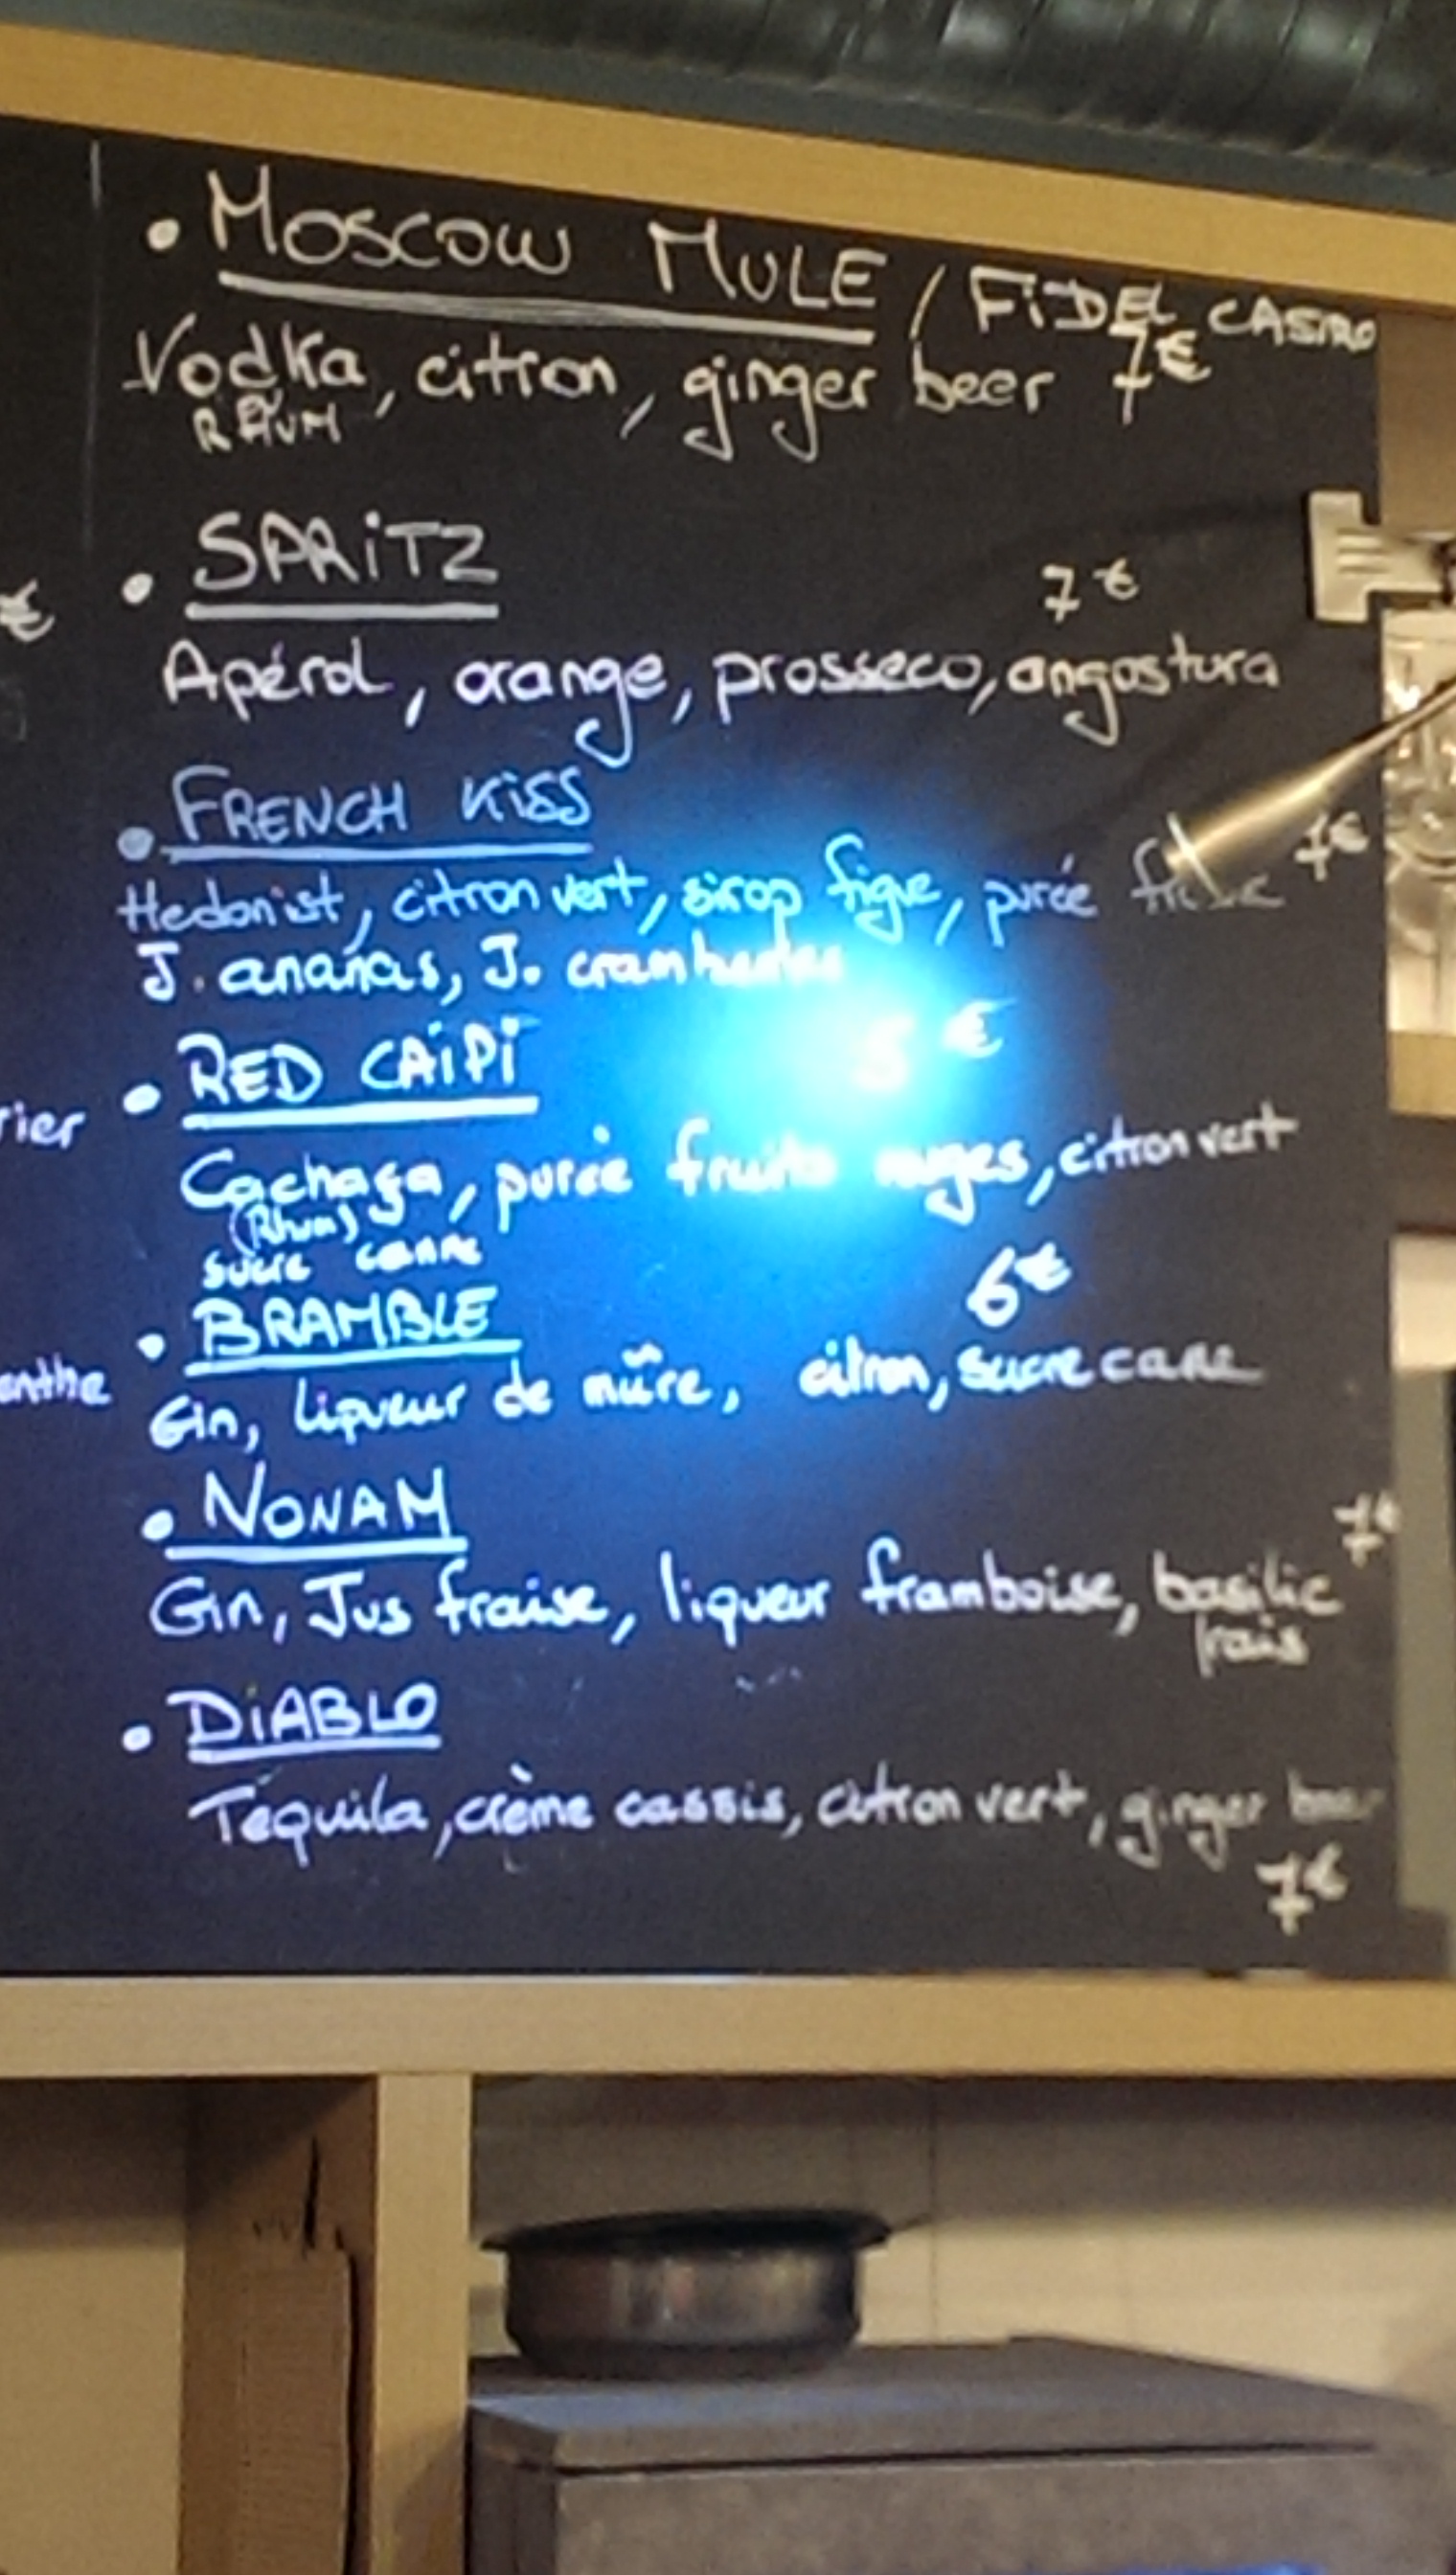 • MOSCOW MULE / FiDEL CASTRO
Vodka, citron, ginger beer 7€
RHUM
• SPRiTZ 7€
€
Apérol, orange, prosseco, angostura
• FRENCH KiSS
Hedonist, citron vert, sirop figue, purée 7€
J. ananas, J. cranberries
• RED CAiPi €
rier
Cachaça, purée fruits rouges, citron vert
(Rhum)
sucre canne
• BRAMBLE 6€
enthe
Gin, liqueur de mûre, citron, sucre cane
• NONAM 7€
Gin, Jus fraise, liqueur framboise, basilic
frais
• DiABLO
Téquila, crème cassis, citron vert, ginger beer
7€